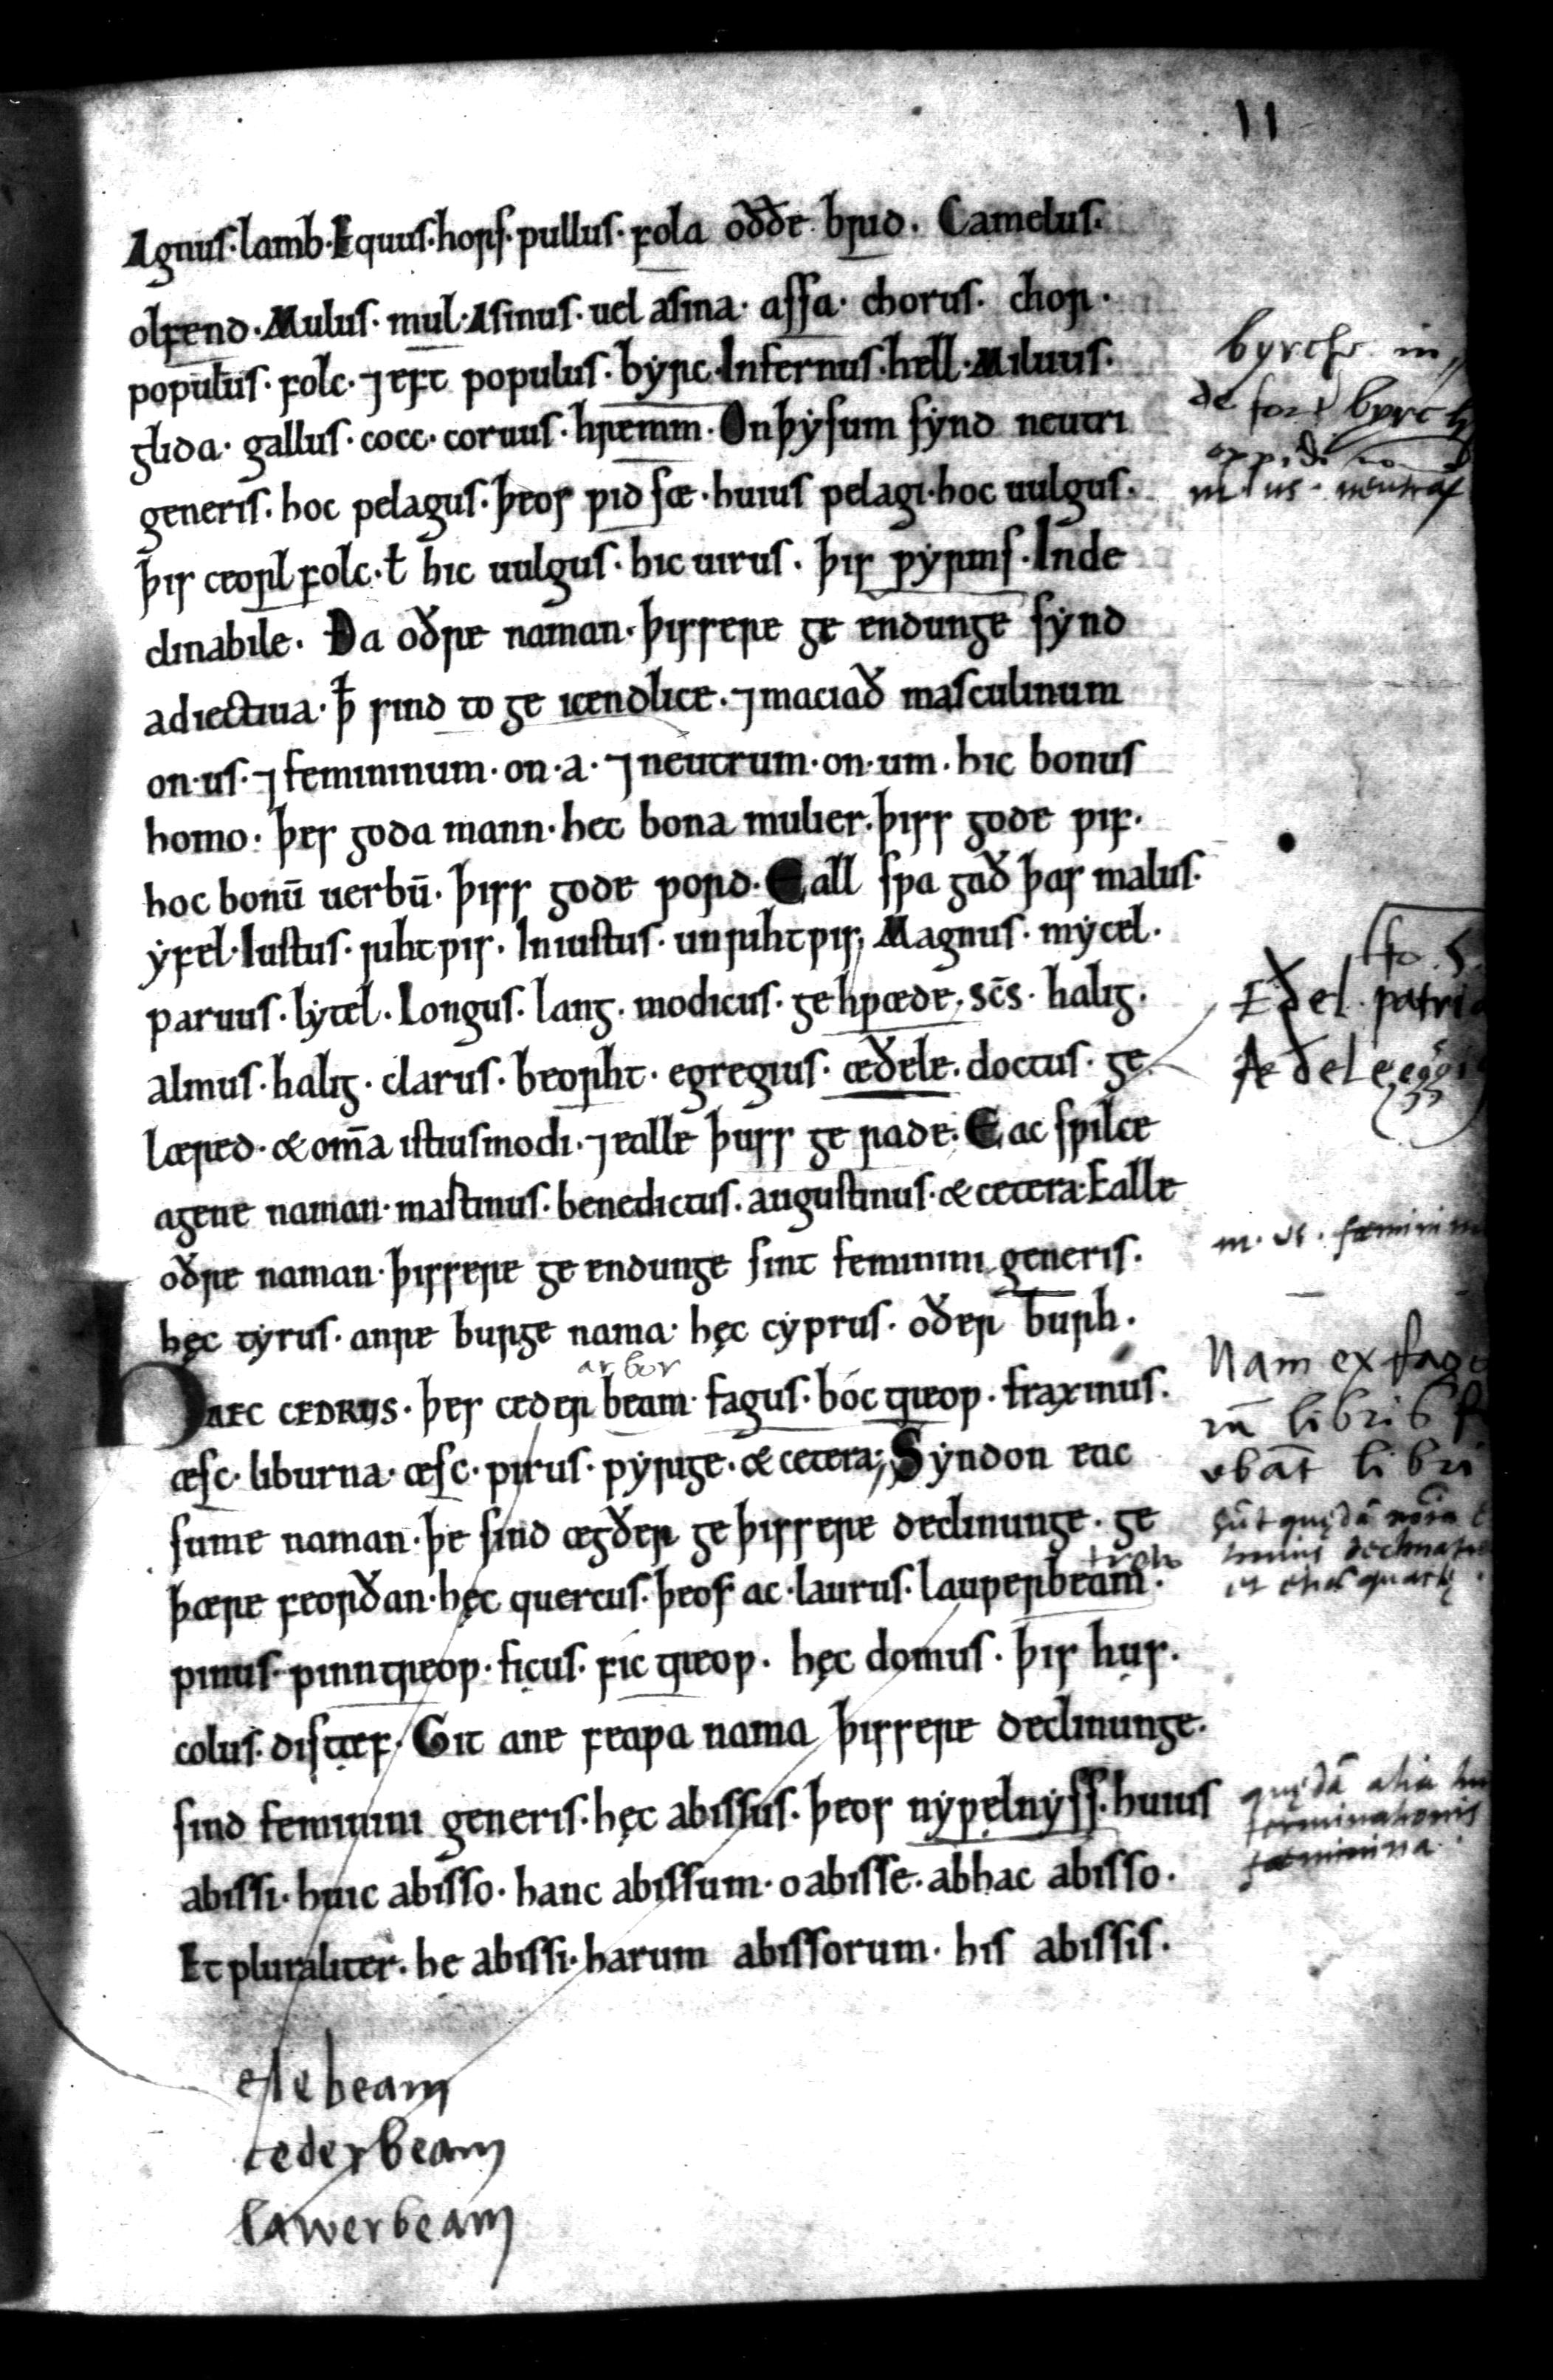 11
Agnus· lamb· Equus· hors· pullus· fola oððe brid. Camelus·
olfend· Mulus· mul· Asinus· uel asina· assa· chorus. chor·
populus· folc· ⁊ eft populus· byrc· Infernus· hell· Miluus·
glida· gallus· cocc· coruus· hremm· On þysum synd neutri
generis· hoc pelagus· þeos ƿid sæ· huius pelagi· hoc uulgus·
þis ceorl folc· ł hic uulgus· hic uirus· þis ƿyrms· Inde
clinabile· Ða oðre naman· þissere ge endunge synd
adiectiua· ꝥ sind to ge icendlice· ⁊ maciað masculinum
on· us· ⁊ femininum· on· a· ⁊ neutrum· on· um· hic bonus
homo· þes goda mann· hec bona mulier· þiss gode ƿif·
hoc bonū uerbū· þiss gode ƿord· Eall sƿa gað þas malus·
yfel· Iustus· rihtƿis· Iniustus· unrihtƿis, Magnus· mycel·
paruus· lytel· Longus· lang· modicus· ge hƿæde, sc̄s· halig·
almus· halig· clarus· beorht· egregius· æðele· doctus· ge
læred· & om̄a istiusmodi· ⁊ ealle þuss ge rade· Eac sƿilce
agene naman· mastinus· benedictus· augustinus· & cetera· Ealle
oðre naman· þissere ge endunge sint feminini generis·
hęc tyrus· anre burge nama· hęc cyprus· oðer burh·
arbor
HAEC CEDRUS· þes ceder beam· fagus· bóc treoƿ· fraxinus·
æsc· liburna· æsc· pirus· pyrige· & cetera; Syndon eac
sume naman· þe sind ægðer ge þissere declinunge· ge
þære feorðan· hęc quercus· þeos ac· laurus· lauƿerbeam·
pinus· pinntreoƿ· ficus· fic treoƿ· hęc domus· þis hus·
colus· distæf· Git ane feaƿa nama þissere declinunge·
sind feminini generis· hęc abissus· þeos nyƿelnyss· huius
abissi· huic abisso· hanc abissum· o abisse· ab hac abisso·
Et pluraliter· he abissi· harum abissorum· his abissis·
in
de
byrch
in us· neutra
fo. 5.
Eðel· patri
Aeðel
in· us· feminin
Nam ex fag
libris
libri
sūt quędā
huius declinat
et quartę
quędā alia hu
terminationis
fæminina·
ele beam
cederbeam
lawerbeam